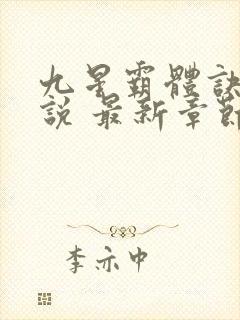 九星霸體訣
說 最新章節
李亦中